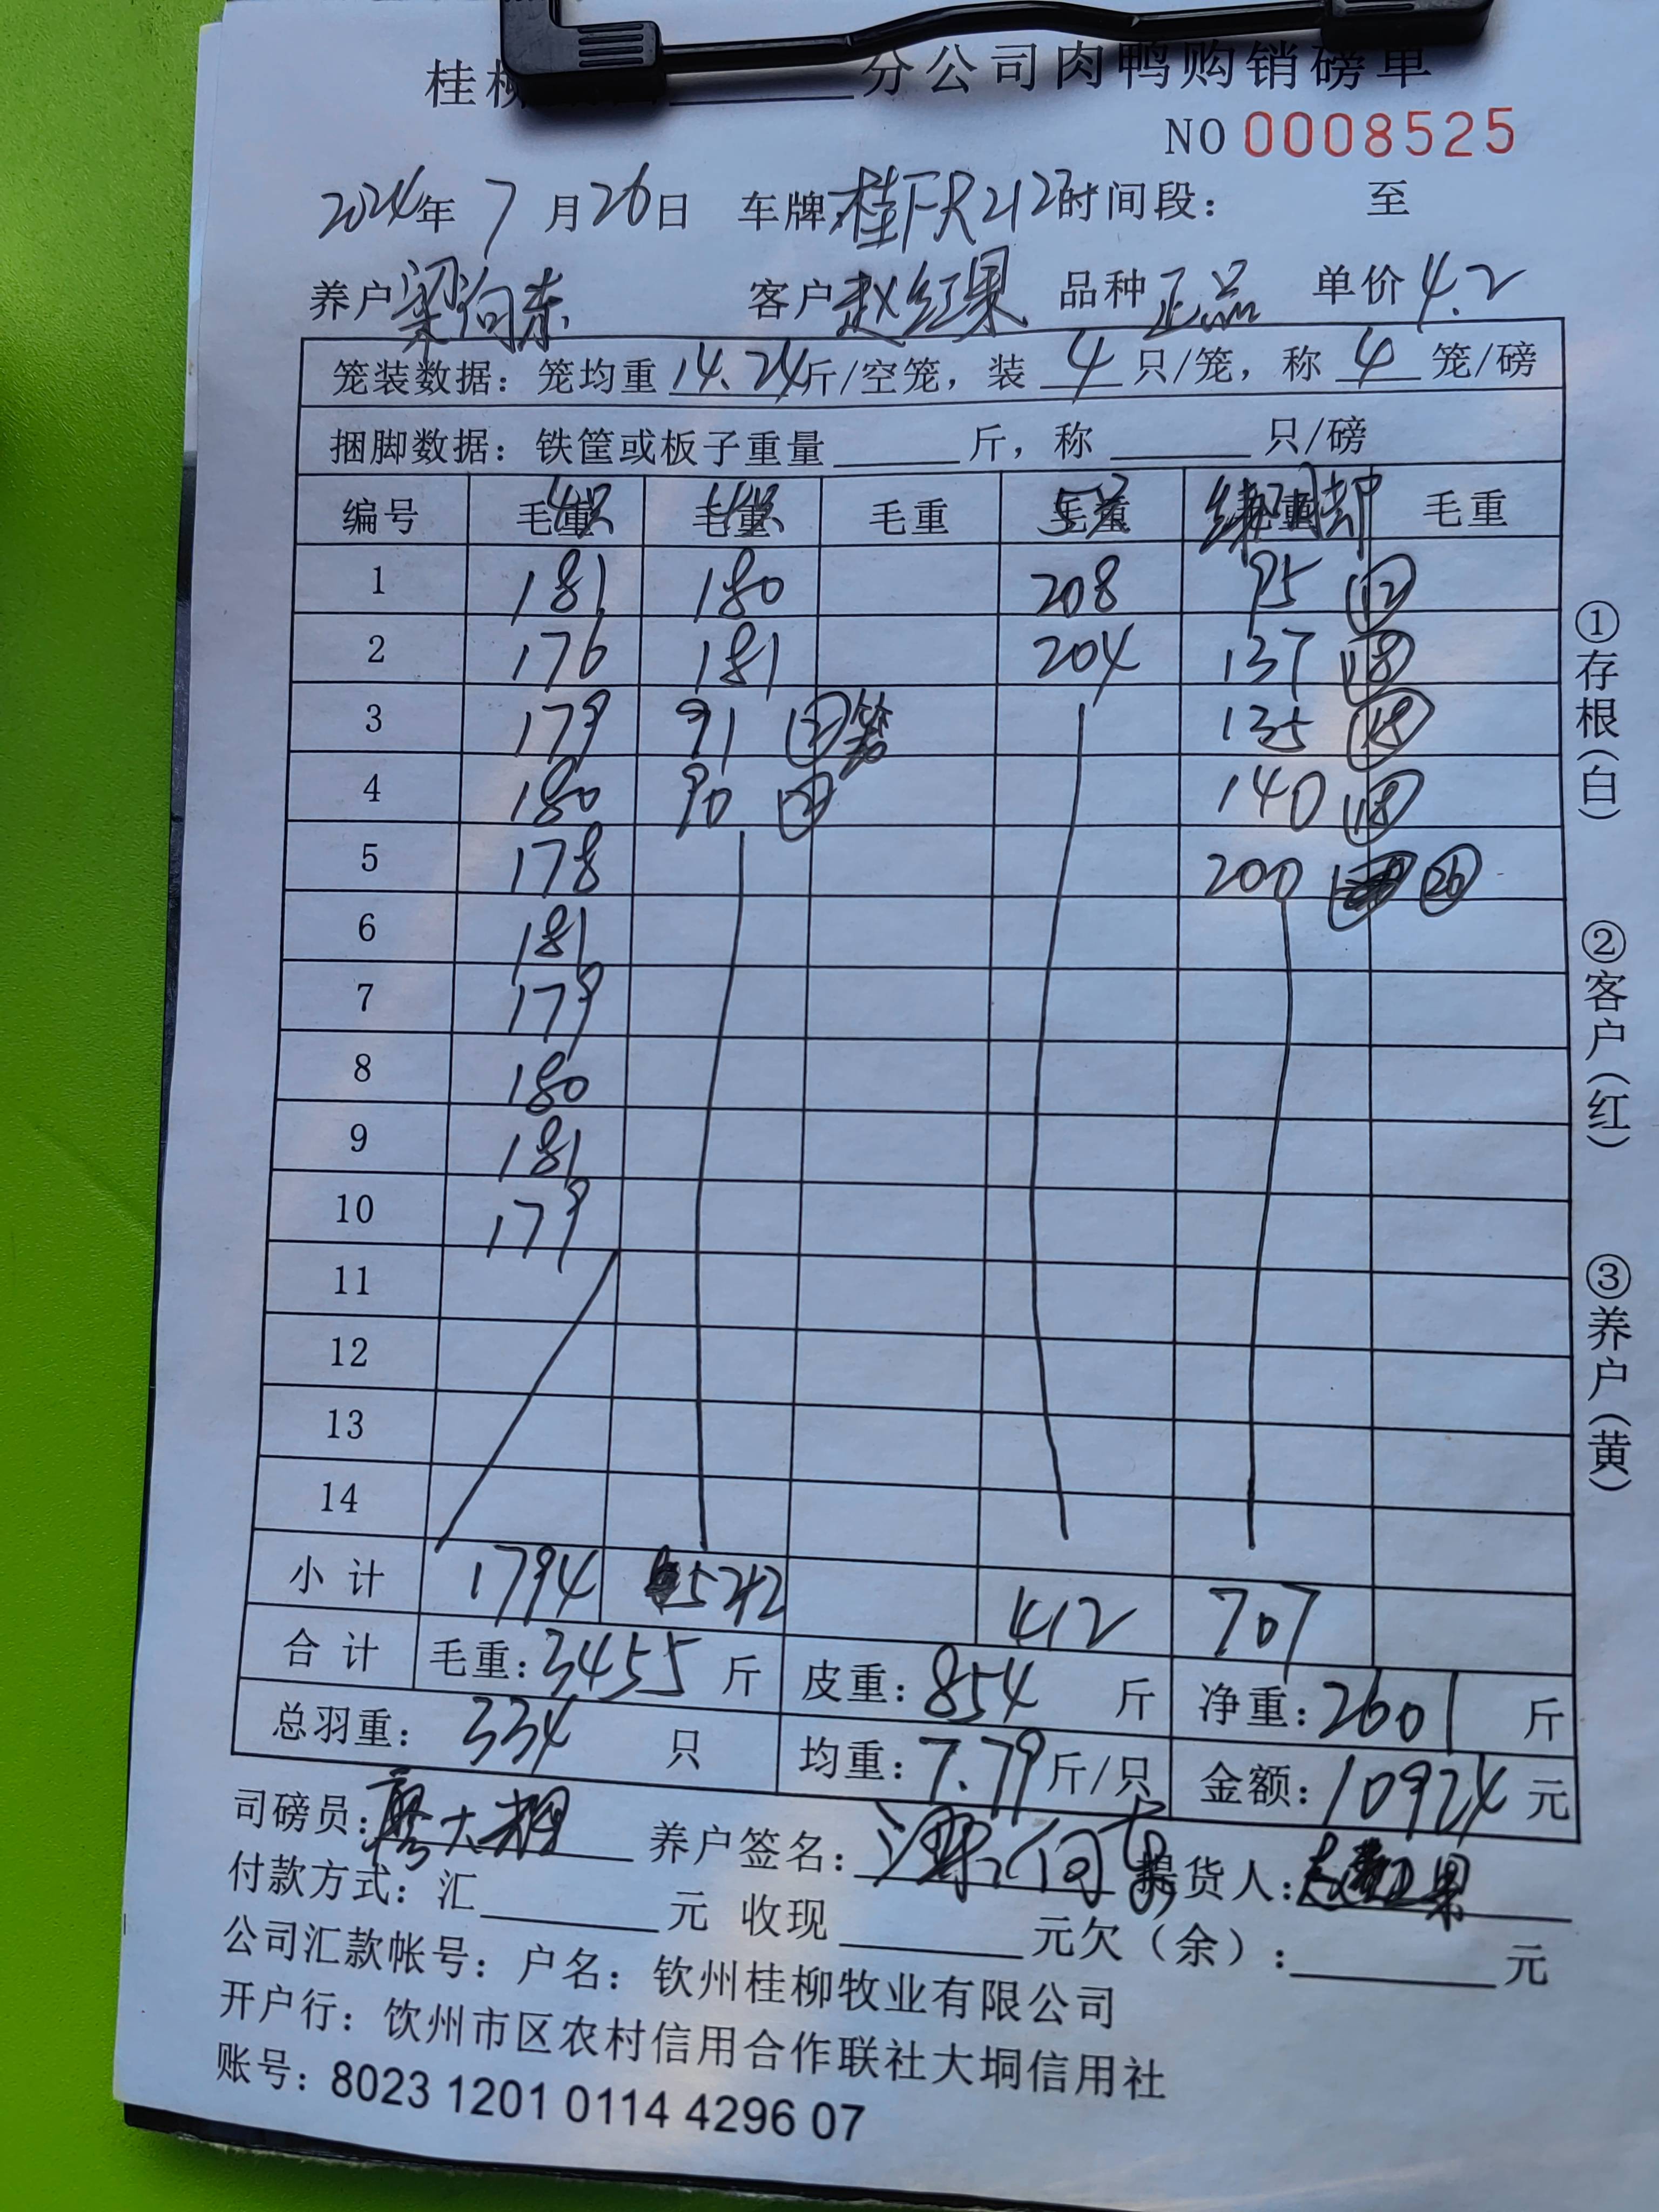 桂柳 分公司肉鸭购销磅单
NO 0008525
2024年 7 月 26 日 车牌 桂FR212 时间段: 至
养户 梁向东 客户 赵红果 品种 正品 单价 4.2
笼装数据: 笼均重 14.24 斤/空笼, 装 4 只/笼, 称 4 笼/磅
捆脚数据: 铁筐或板子重量 斤, 称 只/磅
编号 毛重 4只 毛重 4只 毛重 毛重 5只 毛重 毛重
1 181 180 208 95 ⑫
2 176 181 204 137 ⑱
3 179 91 ② 笼 135 ⑱
4 180 90 ② 140 ⑱
5 178 200 ㉖
6 181
7 179
8 180
9 181
10 179
11
12
13
14
小 计 1794 542 412 707
合 计 毛重: 3455 斤 皮重: 854 斤 净重: 2601 斤
总羽重: 334 只 均重: 7.79 斤/只 金额: 10924 元
司磅员: 廖大 养户签名: 梁向东 提货人: 赵红果
付款方式: 汇 元 收现 元欠(余): 元
公司汇款帐号: 户名: 钦州桂柳牧业有限公司
开户行: 钦州市区农村信用合作联社大垌信用社
账号: 8023 1201 0114 4296 07
①存根(白) ②客户(红) ③养户(黄)